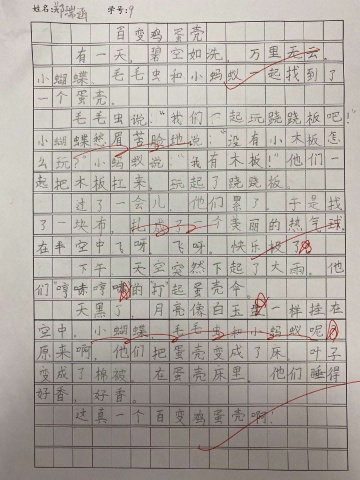 姓名:郑瑞涵 学号:9
百变鸡蛋壳
有一天，碧空如洗，万里无云，
小蝴蝶、毛毛虫和小蚂蚁一起找到了
一个蛋壳。
毛毛虫说：“我们一起玩跷跷板吧！
小蝴蝶愁眉苦脸地说：“没有小木板怎
么玩？”小蚂蚁说：“我有木板！”他们一
起把木板扛来，玩起了跷跷板。
过了一会儿，他们累了，于是找
了一块布，扎成了一个美丽的热气球，
在半空中飞呀，飞呀，快乐极了。
下午，天空突然下起了大雨，他
们“哼哧哼哧”的打起蛋壳伞。
天黑了，月亮像白玉盘一样挂在
空中，小蝴蝶、毛毛虫和小蚂蚁呢？
原来啊，他们把蛋壳变成了床，叶子
变成了棉被，在蛋壳床里，他们睡得
好香，好香。
这真一个百变鸡蛋壳啊！